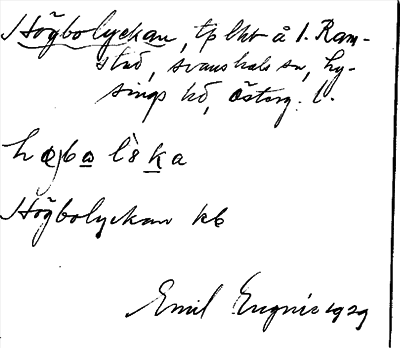 Högbolyckan, tp lht å 1. Ram-
stad, Svanshals sn, Ly-
sings hd, Österg. l.
Högbolyckan kb
Emil 1929